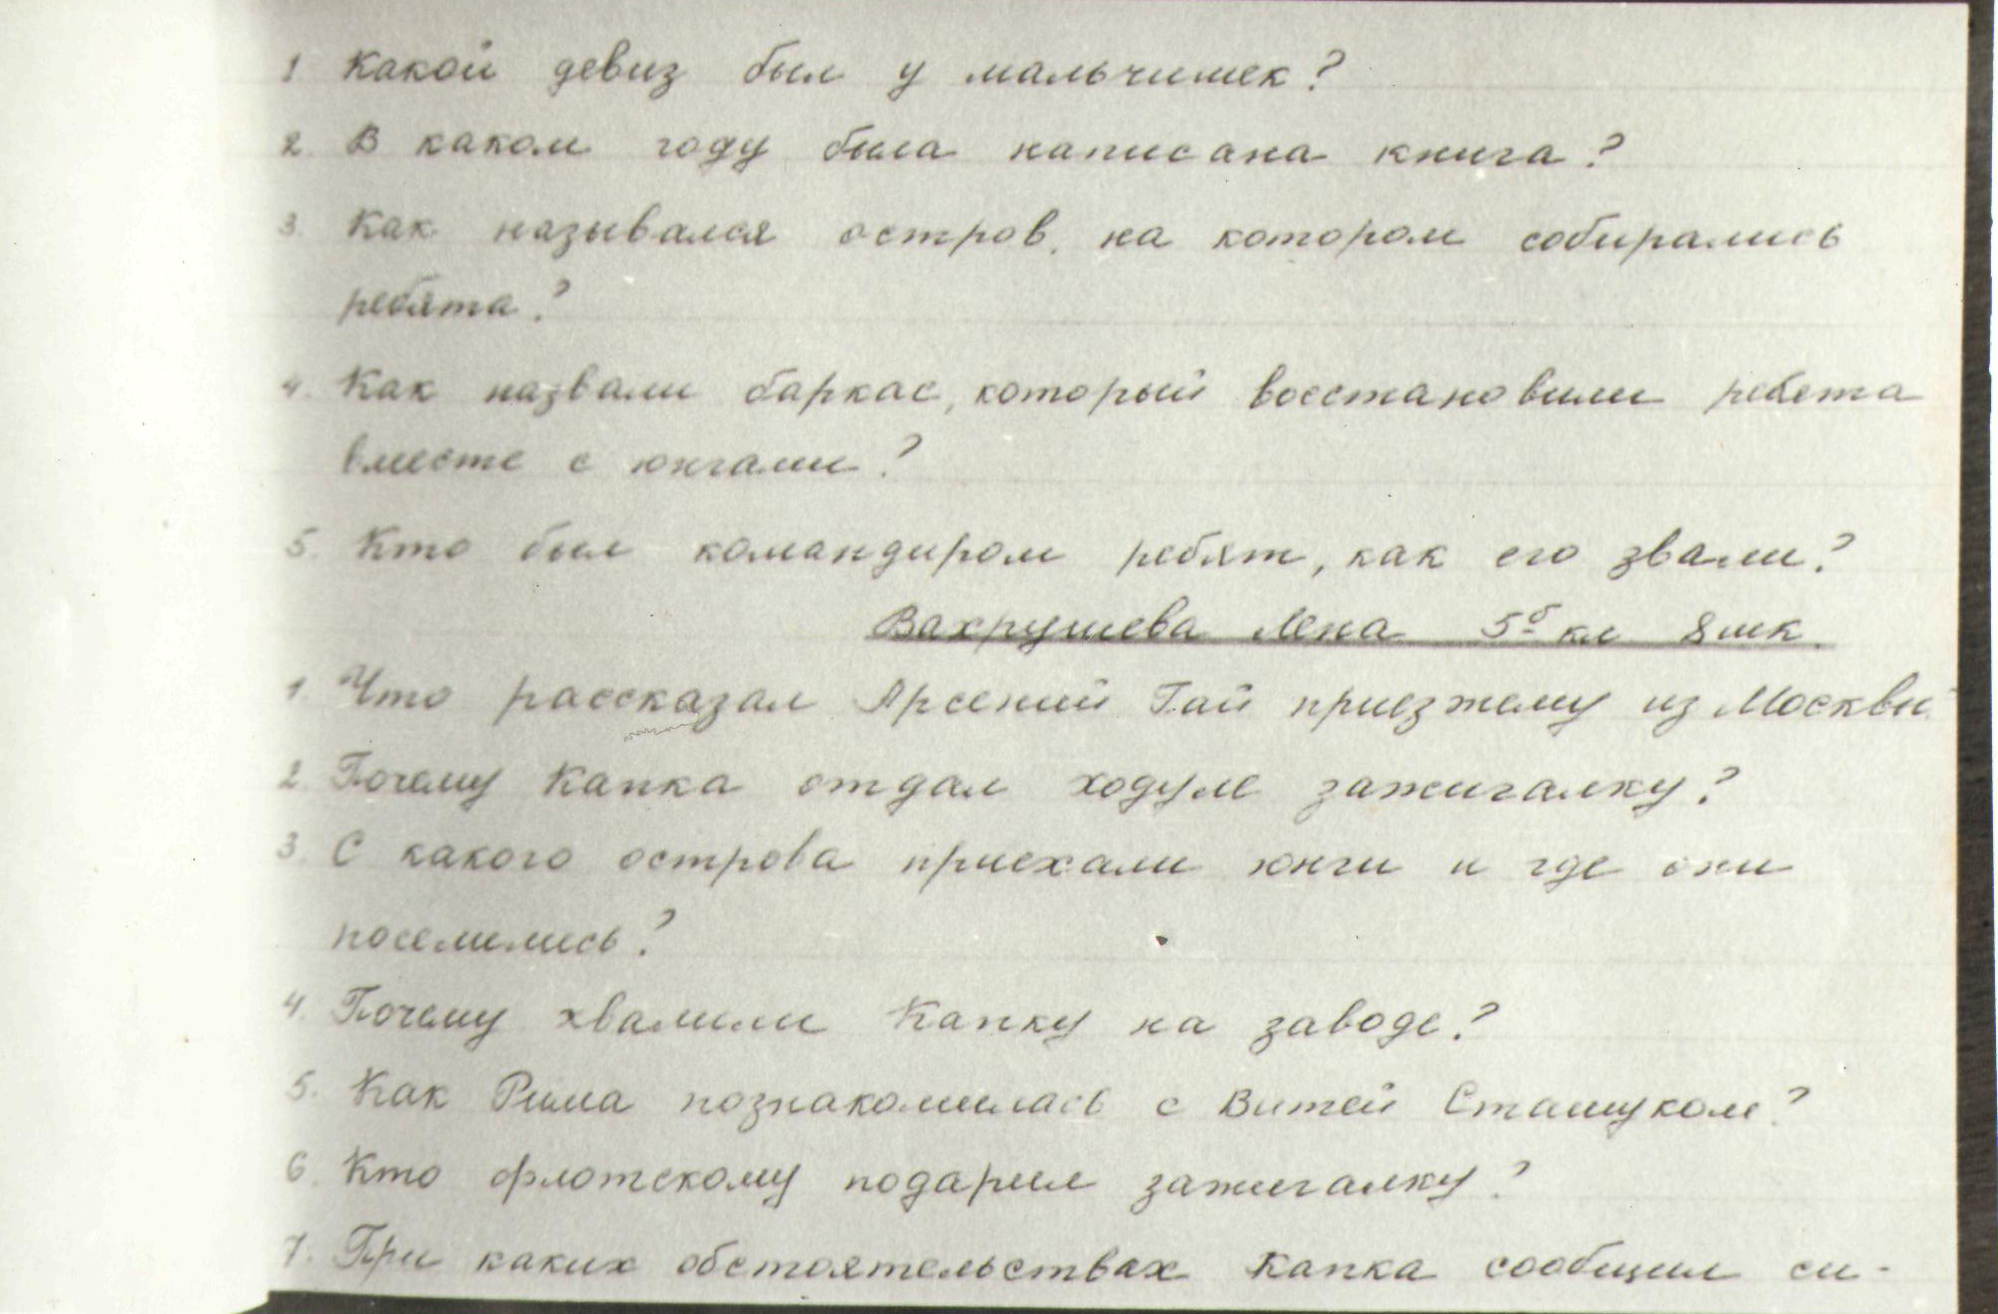 1 Какой девиз был у мальчишек?
2. В каком году была написана книга?
3. Как назывался остров, на котором собирались
ребята?
4. Как назвали баркас, который восстановили ребята
вместе с юнгами?
5. Кто был командиром ребят, как его звали?
Вахрушева Лена 5б кл 8 шк.
1. Что рассказал Арсений Гай приезжему из Москвы
2. Почему Капка отдал ходуле зажигалку?
3. С какого острова приехали юнги и где они
поселились?
4. Почему хвалили Капку на заводе?
5. Как Рима познакомилась с Витей Сташуком?
6. Кто флотскому подарил зажигалку?
7. При каких обстоятельствах Капка сообщил си-